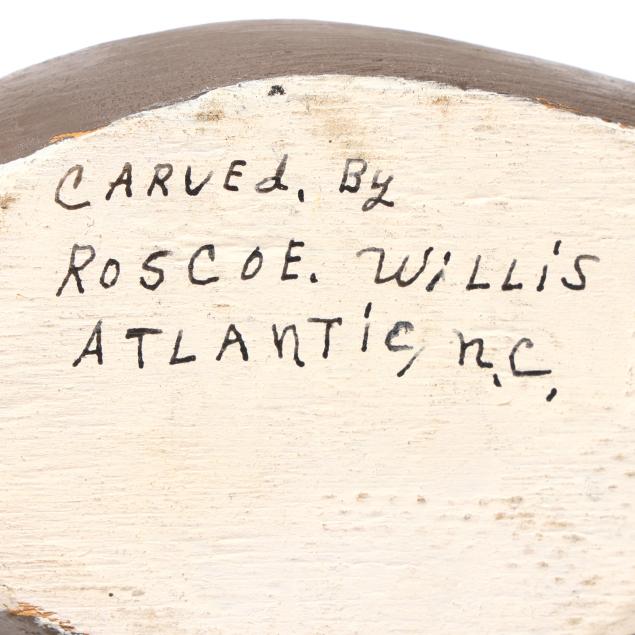 CARVEd, By
ROSCOE. WiLLiS
ATLANTiC, n.C.